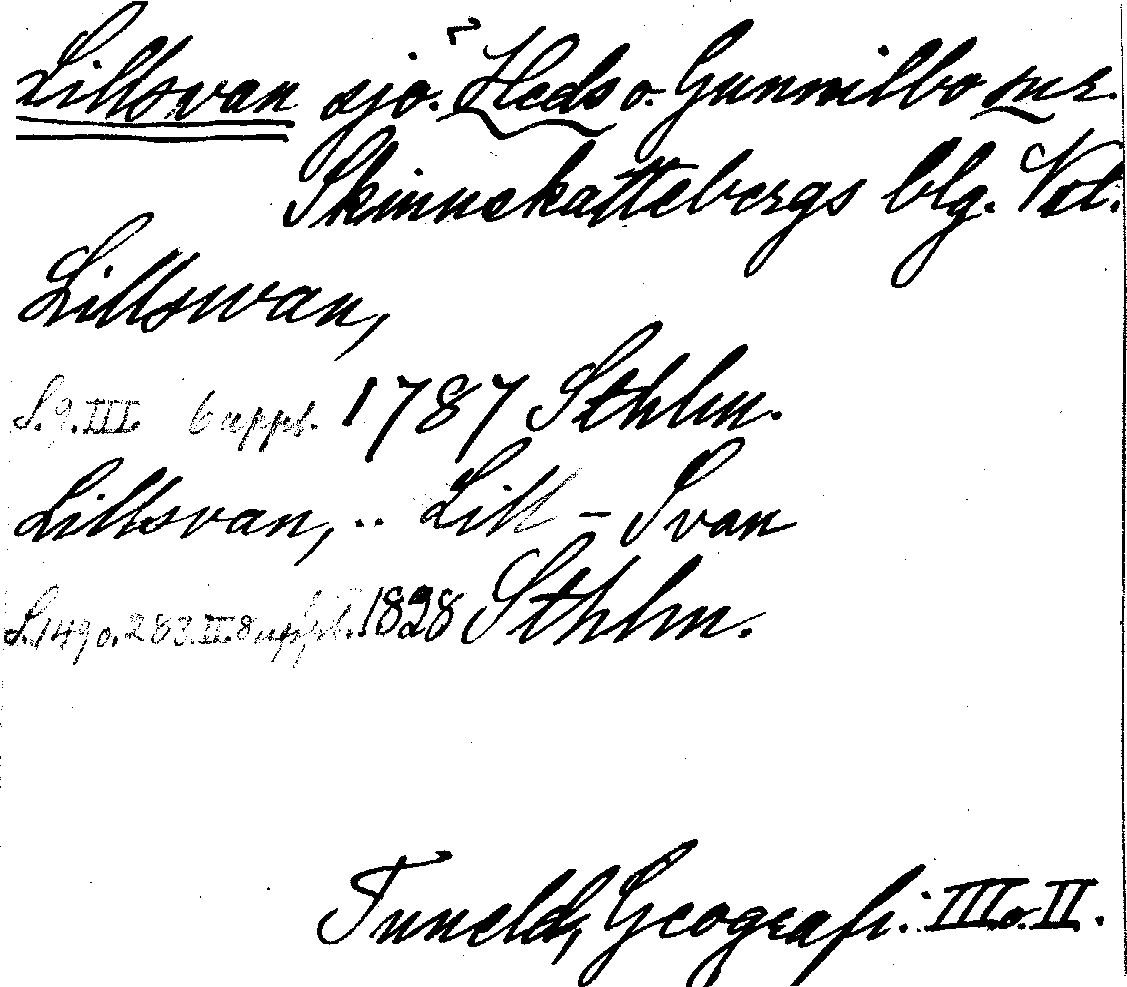 Lillsvan sjö. Heds o. Gunnilbo snr.
Skinnskattebergs blg. Vstl.
Lillswan,
S. 9. III. 6 uppl. 1787 Sthlm.
Lillsvan, .. Lill - Svan
S. 149 o. 283. II. 8 uppl. 1828 Sthlm.
Tuneld, Geografi. III o. II.